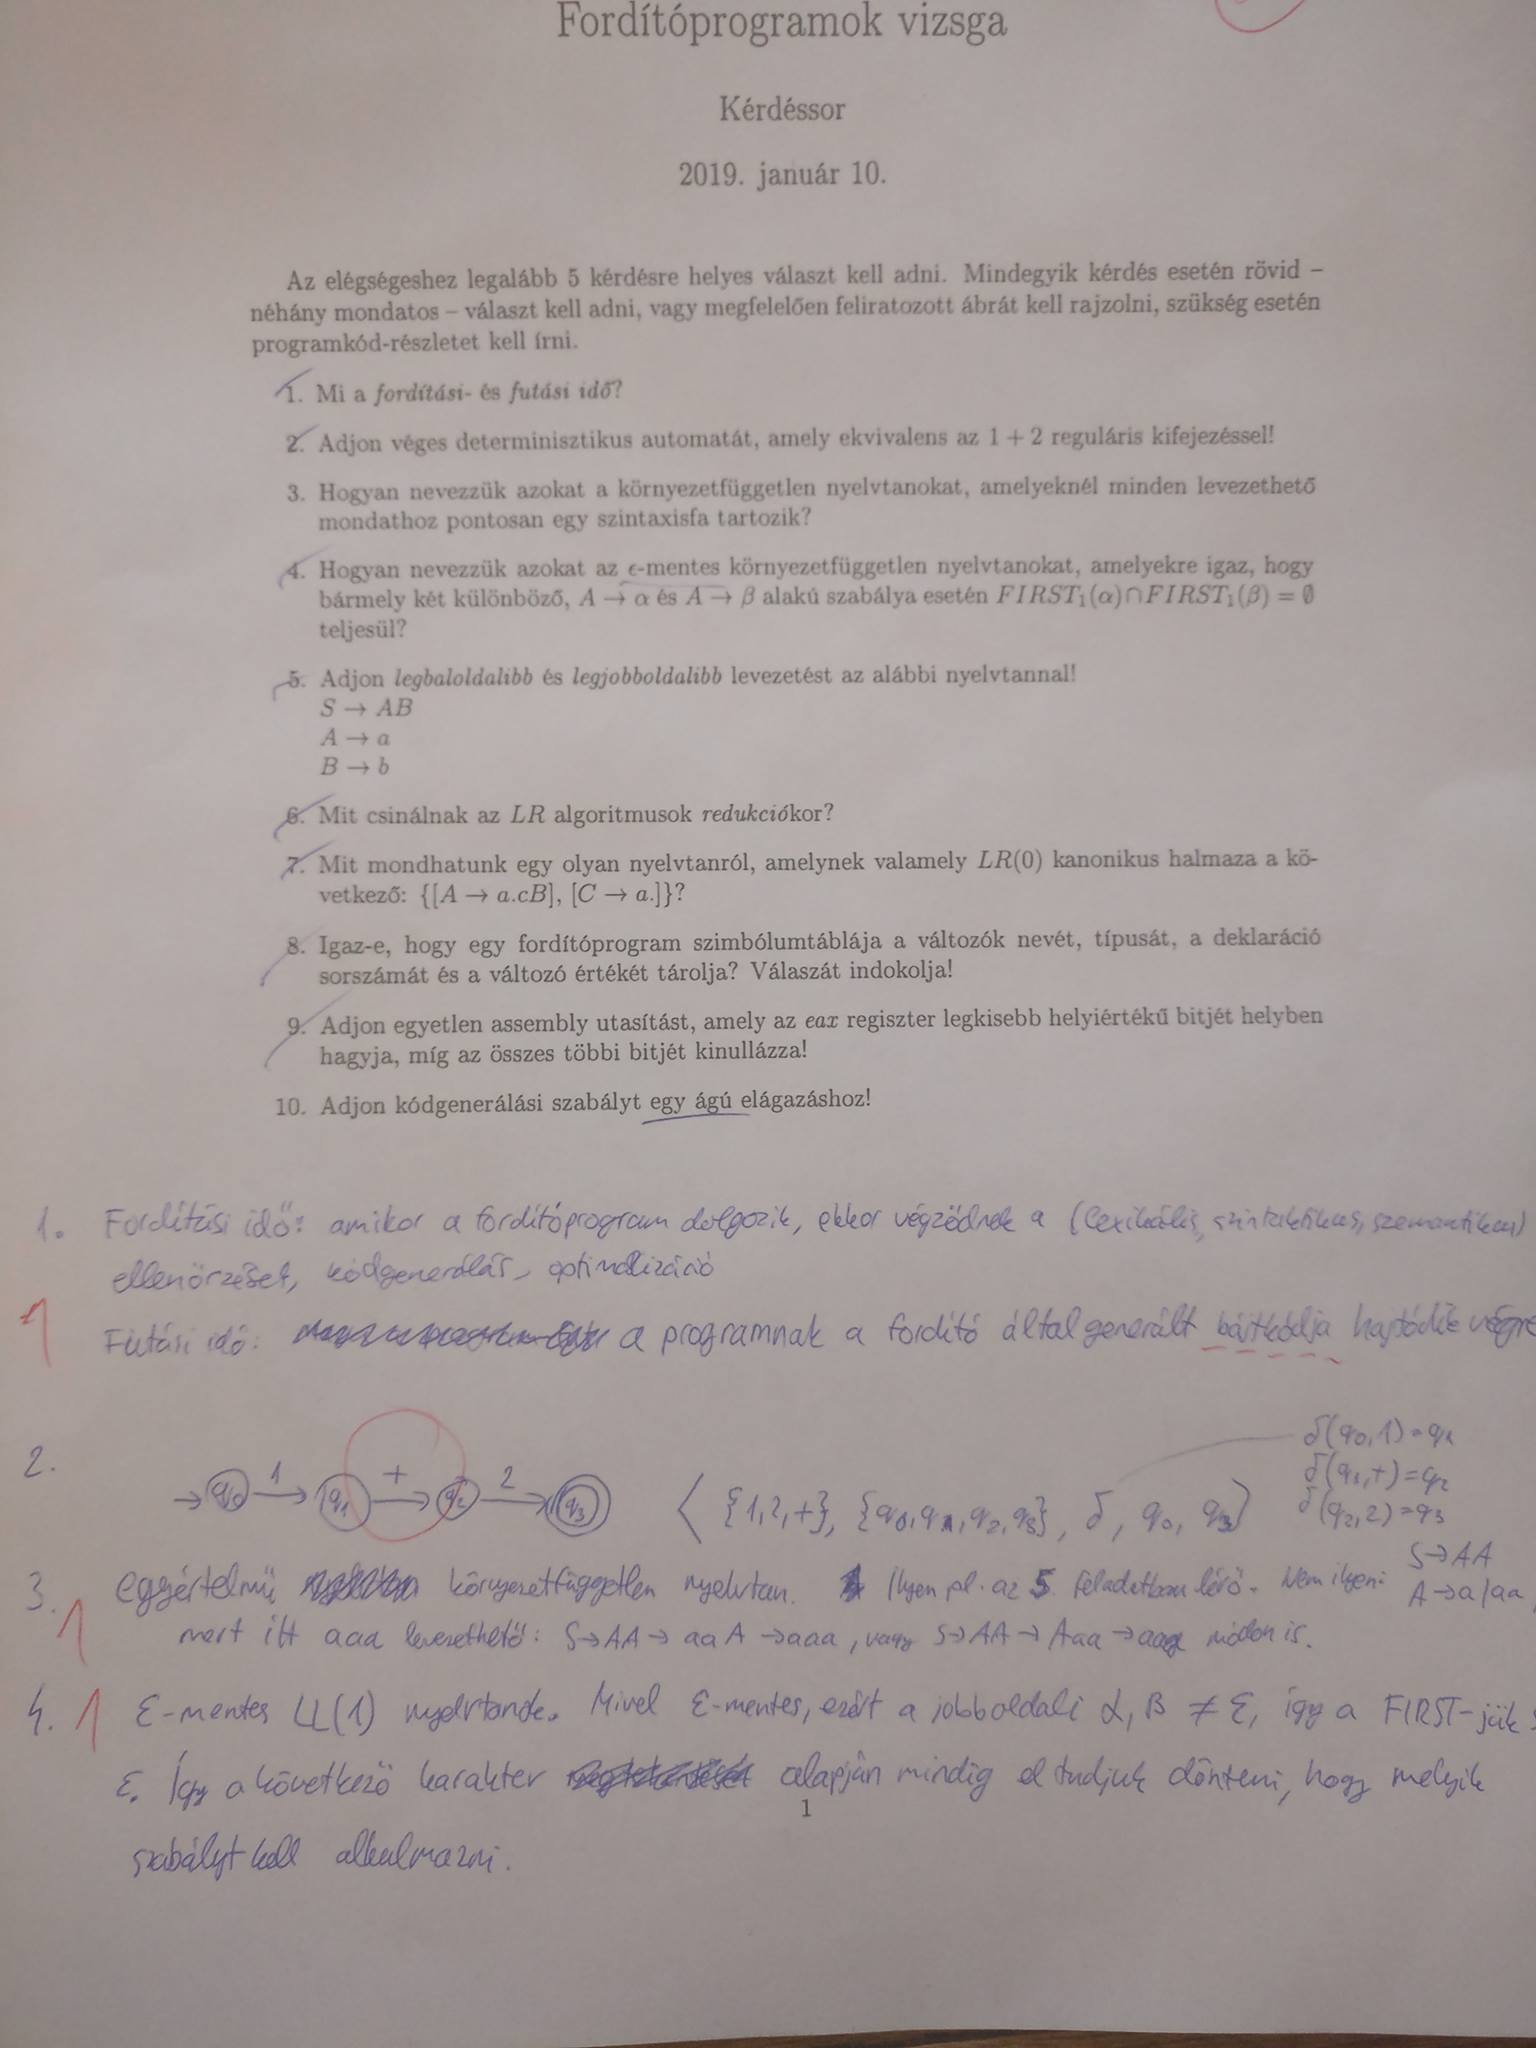 Fordítóprogramok vizsga
Kérdéssor
2019. január 10.
Az elégségeshez legalább 5 kérdésre helyes választ kell adni. Mindegyik kérdés esetén rövid –
néhány mondatos – választ kell adni, vagy megfelelően feliratozott ábrát kell rajzolni, szükség esetén
programkód-részletet kell írni.
1. Mi a fordítási- és futási idő?
2. Adjon véges determinisztikus automatát, amely ekvivalens az 1 + 2 reguláris kifejezéssel!
3. Hogyan nevezzük azokat a környezetfüggetlen nyelvtanokat, amelyeknél minden levezethető
mondathoz pontosan egy szintaxisfa tartozik?
4. Hogyan nevezzük azokat az ϵ-mentes környezetfüggetlen nyelvtanokat, amelyekre igaz, hogy
bármely két különböző, A → α és A → β alakú szabálya esetén FIRST₁(α)∩FIRST₁(β) = ∅
teljesül?
5. Adjon legbaloldalibb és legjobboldalibb levezetést az alábbi nyelvtannal!
S → AB
A → a
B → b
6. Mit csinálnak az LR algoritmusok redukciókor?
7. Mit mondhatunk egy olyan nyelvtanról, amelynek valamely LR(0) kanonikus halmaza a kö-
vetkező: {[A → a.cB], [C → a.]}?
8. Igaz-e, hogy egy fordítóprogram szimbólumtáblája a változók nevét, típusát, a deklaráció
sorszámát és a változó értékét tárolja? Válaszát indokolja!
9. Adjon egyetlen assembly utasítást, amely az eax regiszter legkisebb helyiértékű bitjét helyben
hagyja, míg az összes többi bitjét kinullázza!
10. Adjon kódgenerálási szabályt egy ágú elágazáshoz!
1. Fordítási idő: amikor a fordítóprogram dolgozik, ekkor végződnek a (lexikális, szintaktikus, szemantikus)
ellenőrzések, kódgenerálás, optimalizáció
1 Futási idő: a programnak a fordító által generált bájtkódja hajtódik végre
2. q0 1 q1 + q2 2 q3 ⟨ {1,2,+}, {q0,q1,q2,q3}, δ, q0, q3 ⟩
δ(q0,1)=q1
δ(q1,+)=q2
δ(q2,2)=q3
3. 1 egyértelmű környezetfüggetlen nyelvtan. Ilyen pl. az 5. feladatban lévő. Nem ilyen: S→AA
A→a|aa,
mert itt aaa levezethető: S→AA→aaA→aaa, vagy S→AA→Aaa→aaa módon is.
4. 1 ε-mentes LL(1) nyelvtanok. Mivel ε-mentes, ezért a jobboldali α, β ≠ ε, így a FIRST-jük
ε. Így a következő karakter alapján mindig el tudjuk dönteni, hogy melyik
szabályt kell alkalmazni.
1